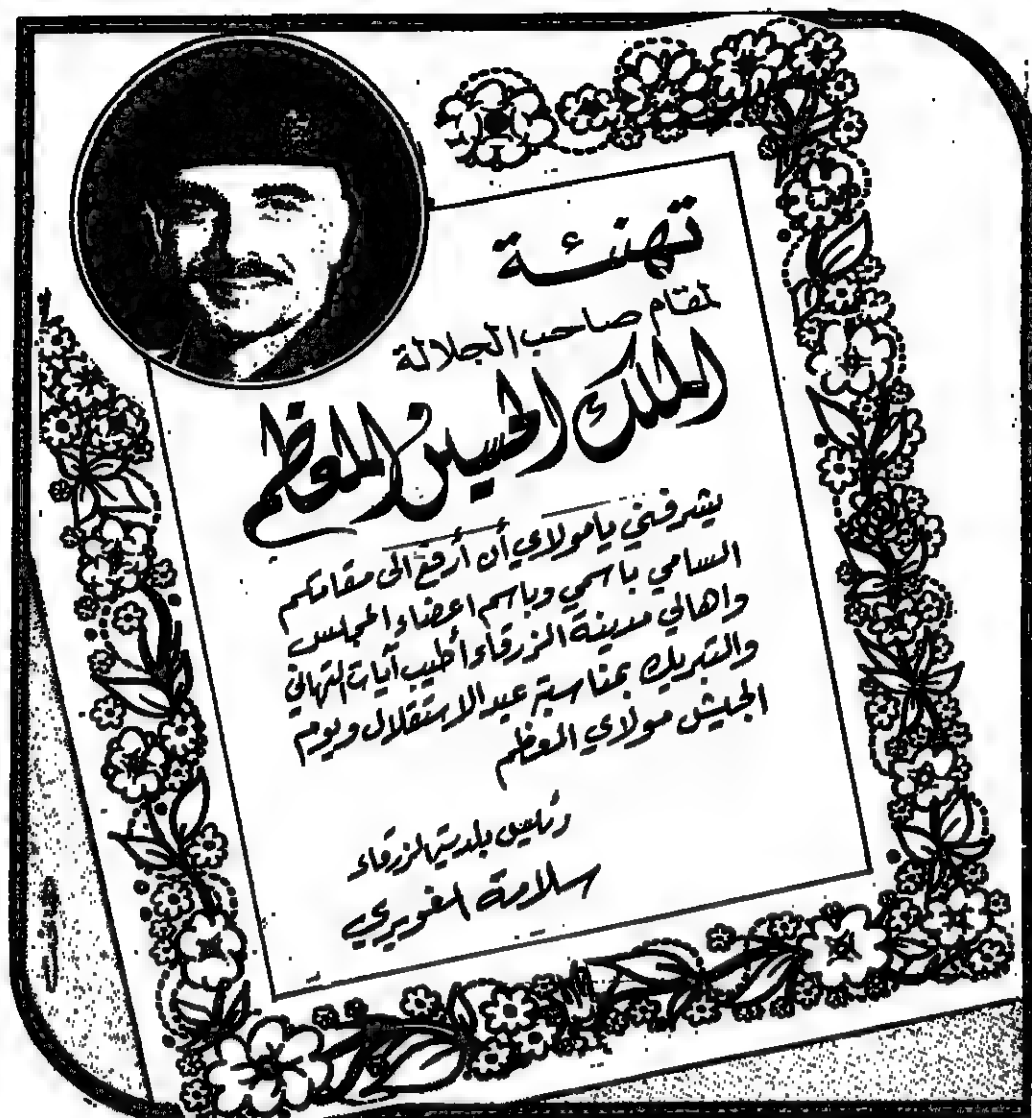 تهنئة
لمقام صاحب الجلالة
الملك الحسين المعظم
يشرفني يا مولاي أن أرفع الى مقامكم
السامي باسمي وباسم اعضاء المجلس
واهالي مدينة الزرقاء أطيب آيات التهاني
والتبريك بمناسبة عيد الاستقلال ويوم
الجيش مولاي المعظم
رئيس بلدية الزرقاء
سلامة الغويري